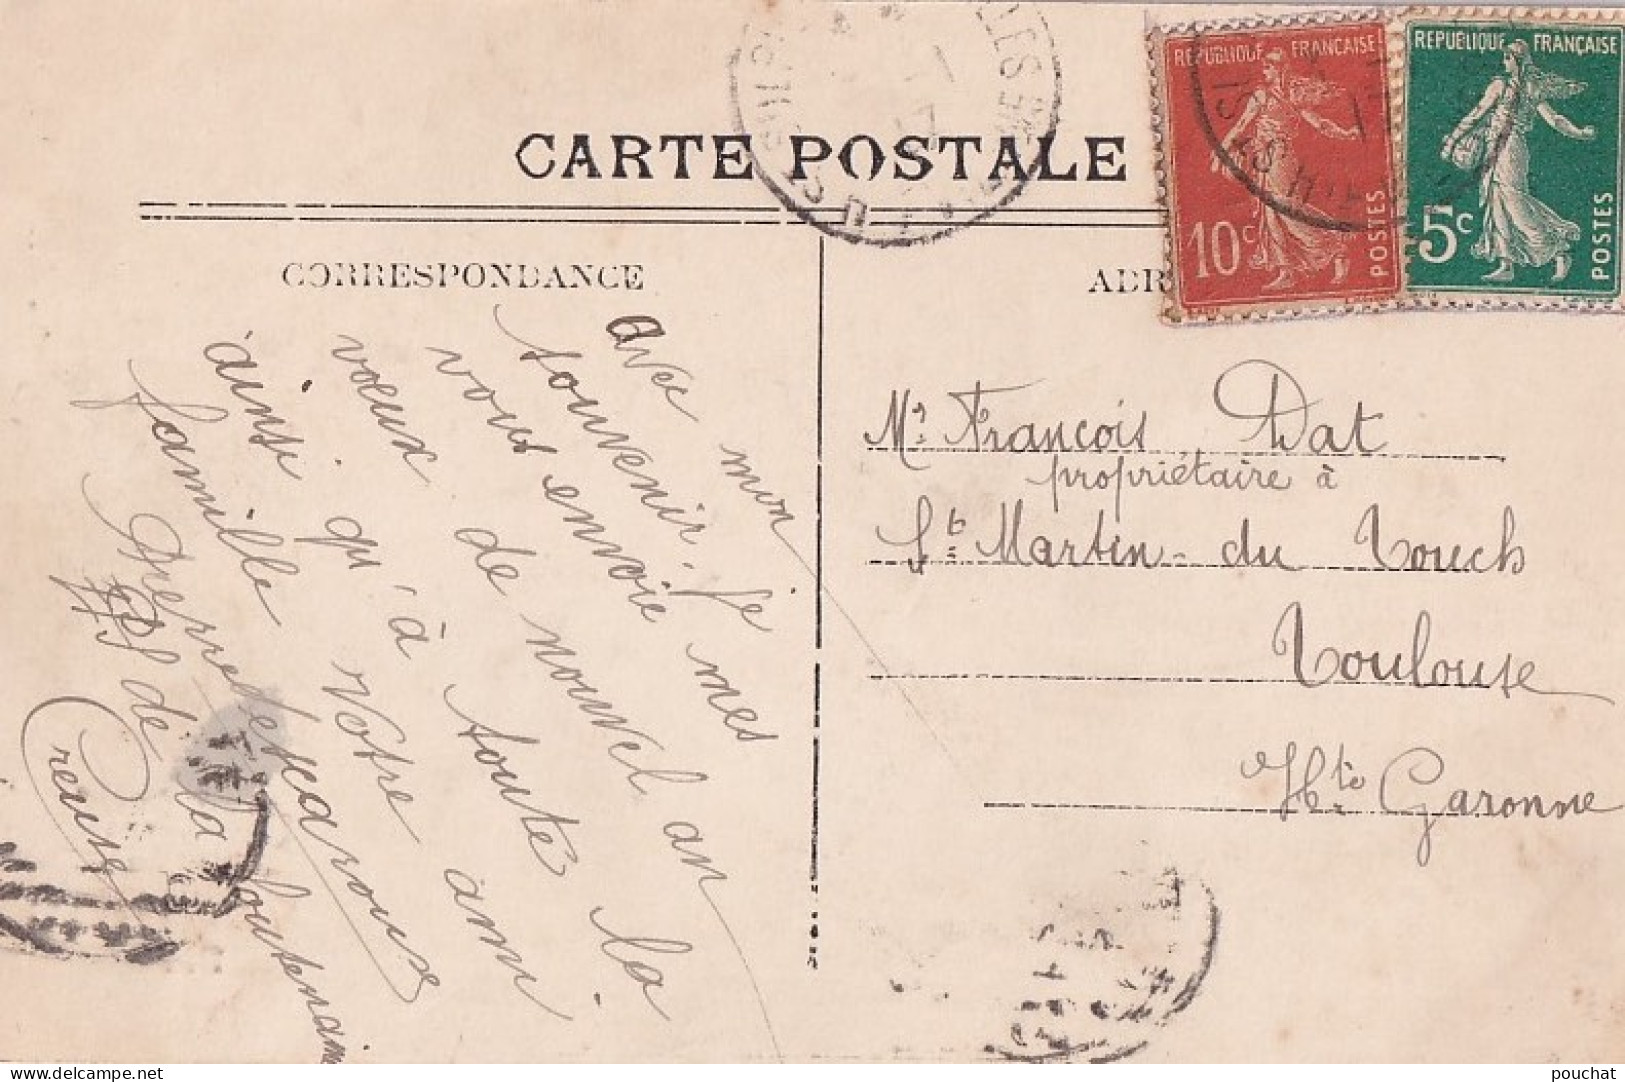 CARTE POSTALE
RÉPUBLIQUE FRANÇAISE
10c
POSTES
RÉPUBLIQUE FRANÇAISE
5c
POSTES
CORRESPONDANCE
ADR
Avec mon
souvenir. je
vous envoie mes
voeux de nouvel an
ainsi qu'à toute la
famille Votre ami
Pierre
de la Souterraine
Creuse
Mr François Dat
propriétaire à
St Martin-du Touch
Toulouse
Hte Garonne
delcampe.net
pouchat